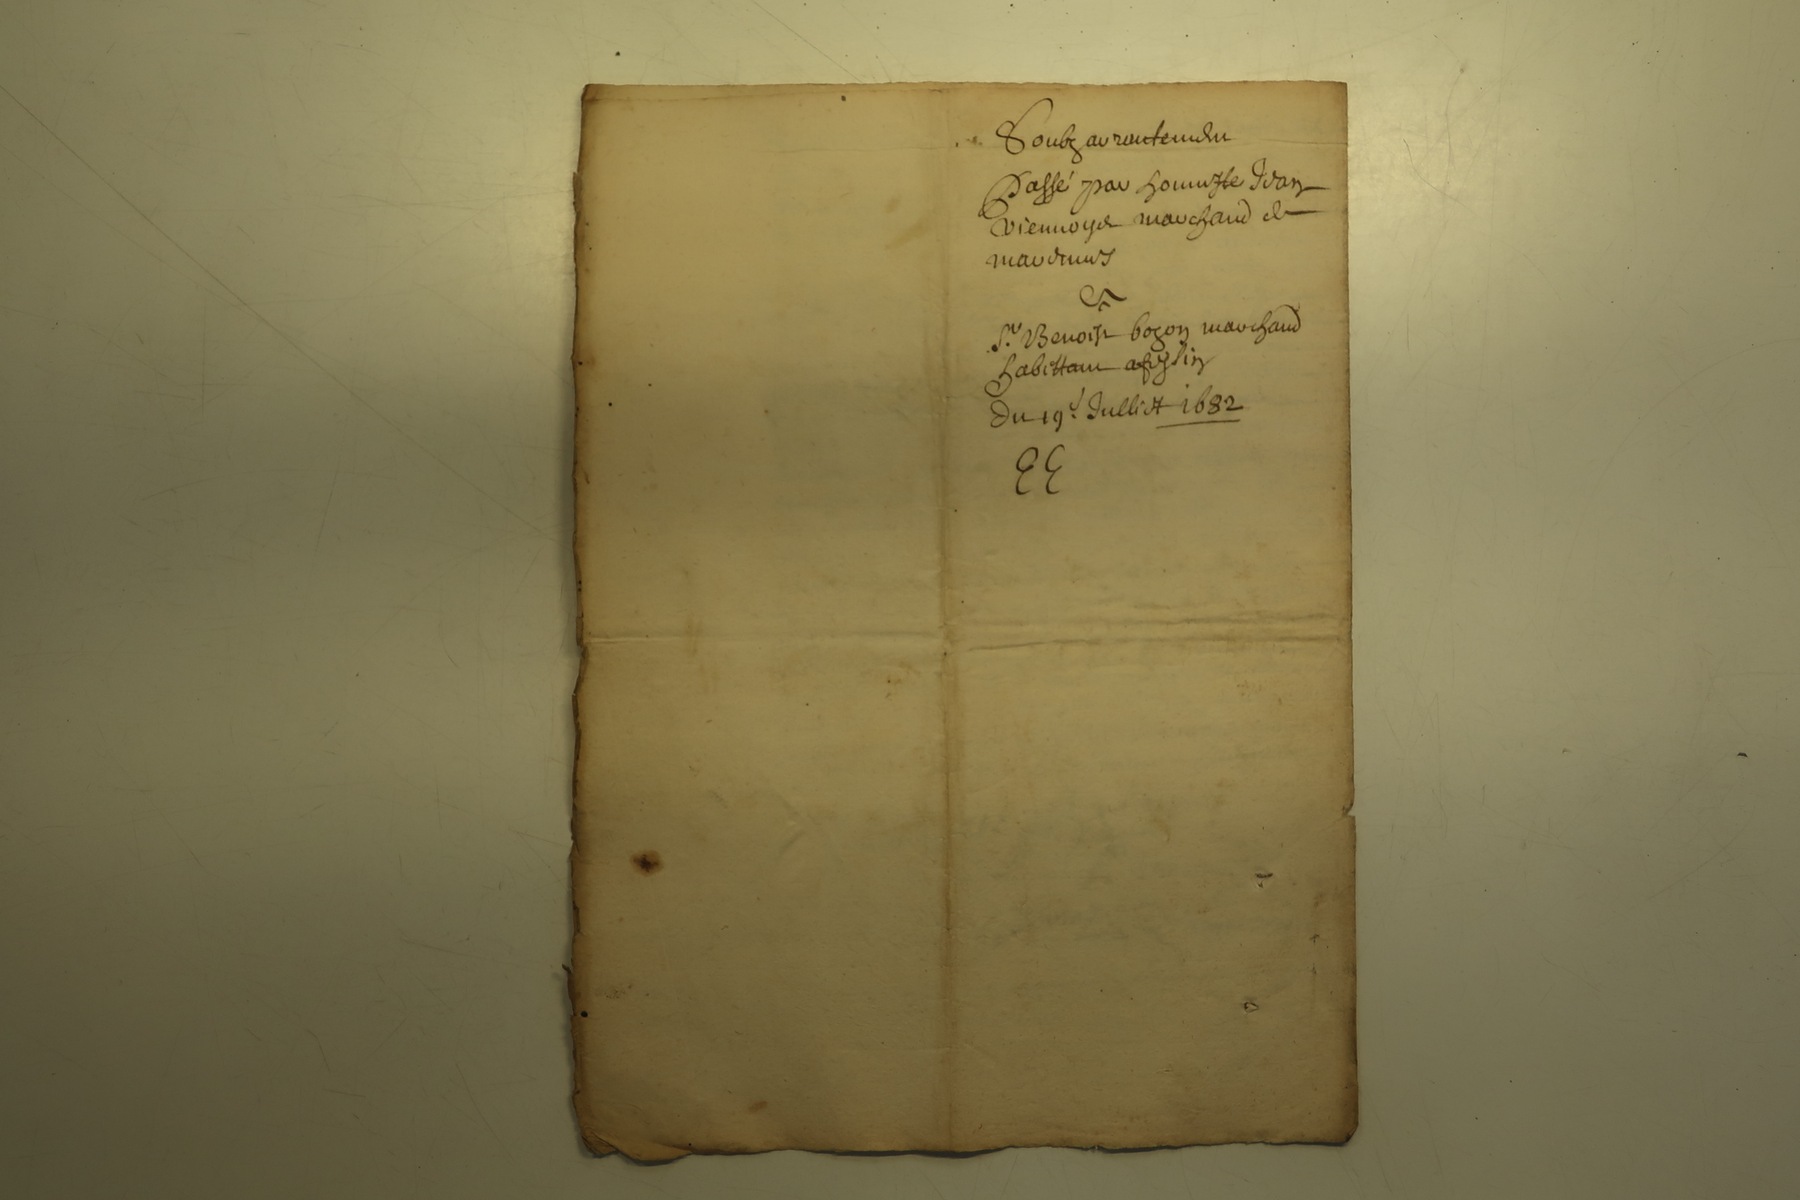 Soubz arrantemen
Passé par honneste Jean
viennoys marchand de
A
Sr Benoist bozon marchand
habittant
Du 19e Julliet 1682
EE